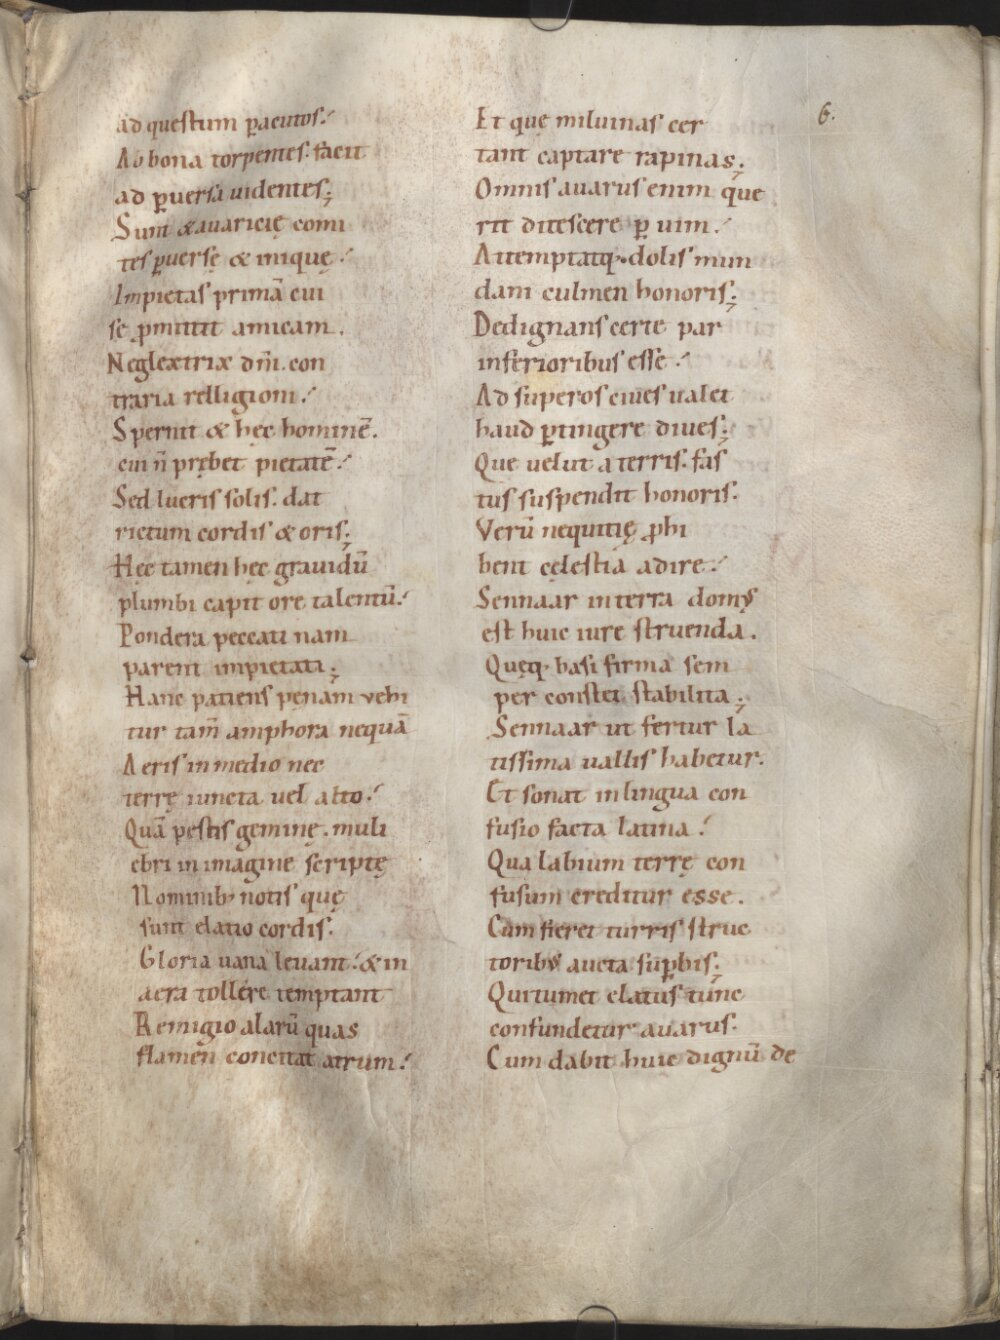 6.
ad questum p̲acutos.
Ab bona torpentes. facit
ad ꝑuersa uidentes;
Sunt & auaricię comi
tes ꝑuersę & iniquę.
Impietas primā cui
se ꝓmittit amicam.
Neglextrix dn̄i. con
traria relligioni.
Spernit & hec hominē.
cui n̄ prębet pietatē.
Sed lucris solis. dat
rictum cordis & oris;
Hęc tamen hęc grauidū
plumbi capit ore talentū.
Pondera peccati nam
parent impietati;
Hanc patiens pęnam vehi
tur tam̄ amphora nequā
Aeris in medio nec
terrę iuncta vel alto.
Quā pestis geminę. muli
ebri in imagine scriptę
Nominib; notis quę
sunt elatio cordis.
Gloria uana leuant. & in
aera tollere temptant
Remigio alarū quas
flamen concitat atrum.
Et quę miluinas cer
tant captare rapinas;
Omnis auarus enim que
rit ditescere ꝑ uim.
Attemptatq; dolis mun
dani culmen honoris;
Dedignans certe par
inferioribus esse.
Ad superos ciues ualet
haud ꝑtingere diues;
Que velut a terris. fas
tus suspendit honoris.
Verū nequitię ꝓhi
bent cęlestia adire.
Sennaar in terra domꝰ
est huic iure struenda.
Quęq; basi firma sem
per constet stabilita;
Sennaar ut fertur la
tissima uallis habetur.
Et sonat in lingua con
fusio facta latina.
Qua labium terrę con
fusum creditur esse.
Cum fieret turris struc
toribꝰ aucta suꝑbis;
Quitumet elatus tunc
confundetur auarus.
Cum dabit huic dignū de